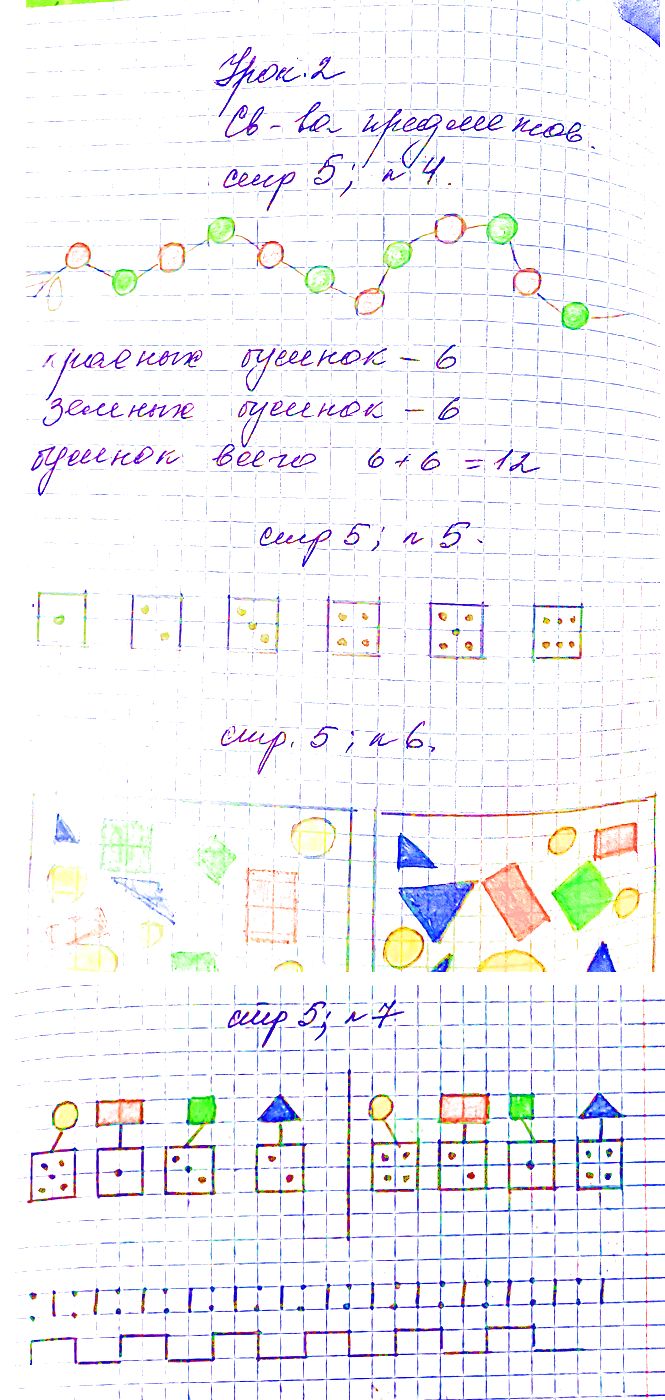 Урок. 2
Св-ва предметов.
стр 5; н 4.
красных бусинок - 6
зеленых бусинок - 6
бусинок всего 6 + 6 = 12
стр 5; н 5.
стр. 5; н 6.
стр 5; н 7